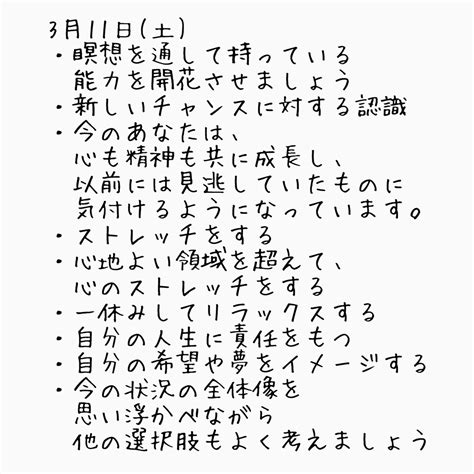 3月11日(土)
・瞑想を通して持っている
能力を開花させましょう
・新しいチャンスに対する認識
・今のあなたは、
心も精神も共に成長し、
以前には見逃していたものに
気付けるようになっています。
・ストレッチをする
・心地よい領域を超えて、
心のストレッチをする
・一休みしてリラックスする
・自分の人生に責任をもつ
・自分の希望や夢をイメージする
・今の状況の全体像を
思い浮かべながら
他の選択肢もよく考えましょう